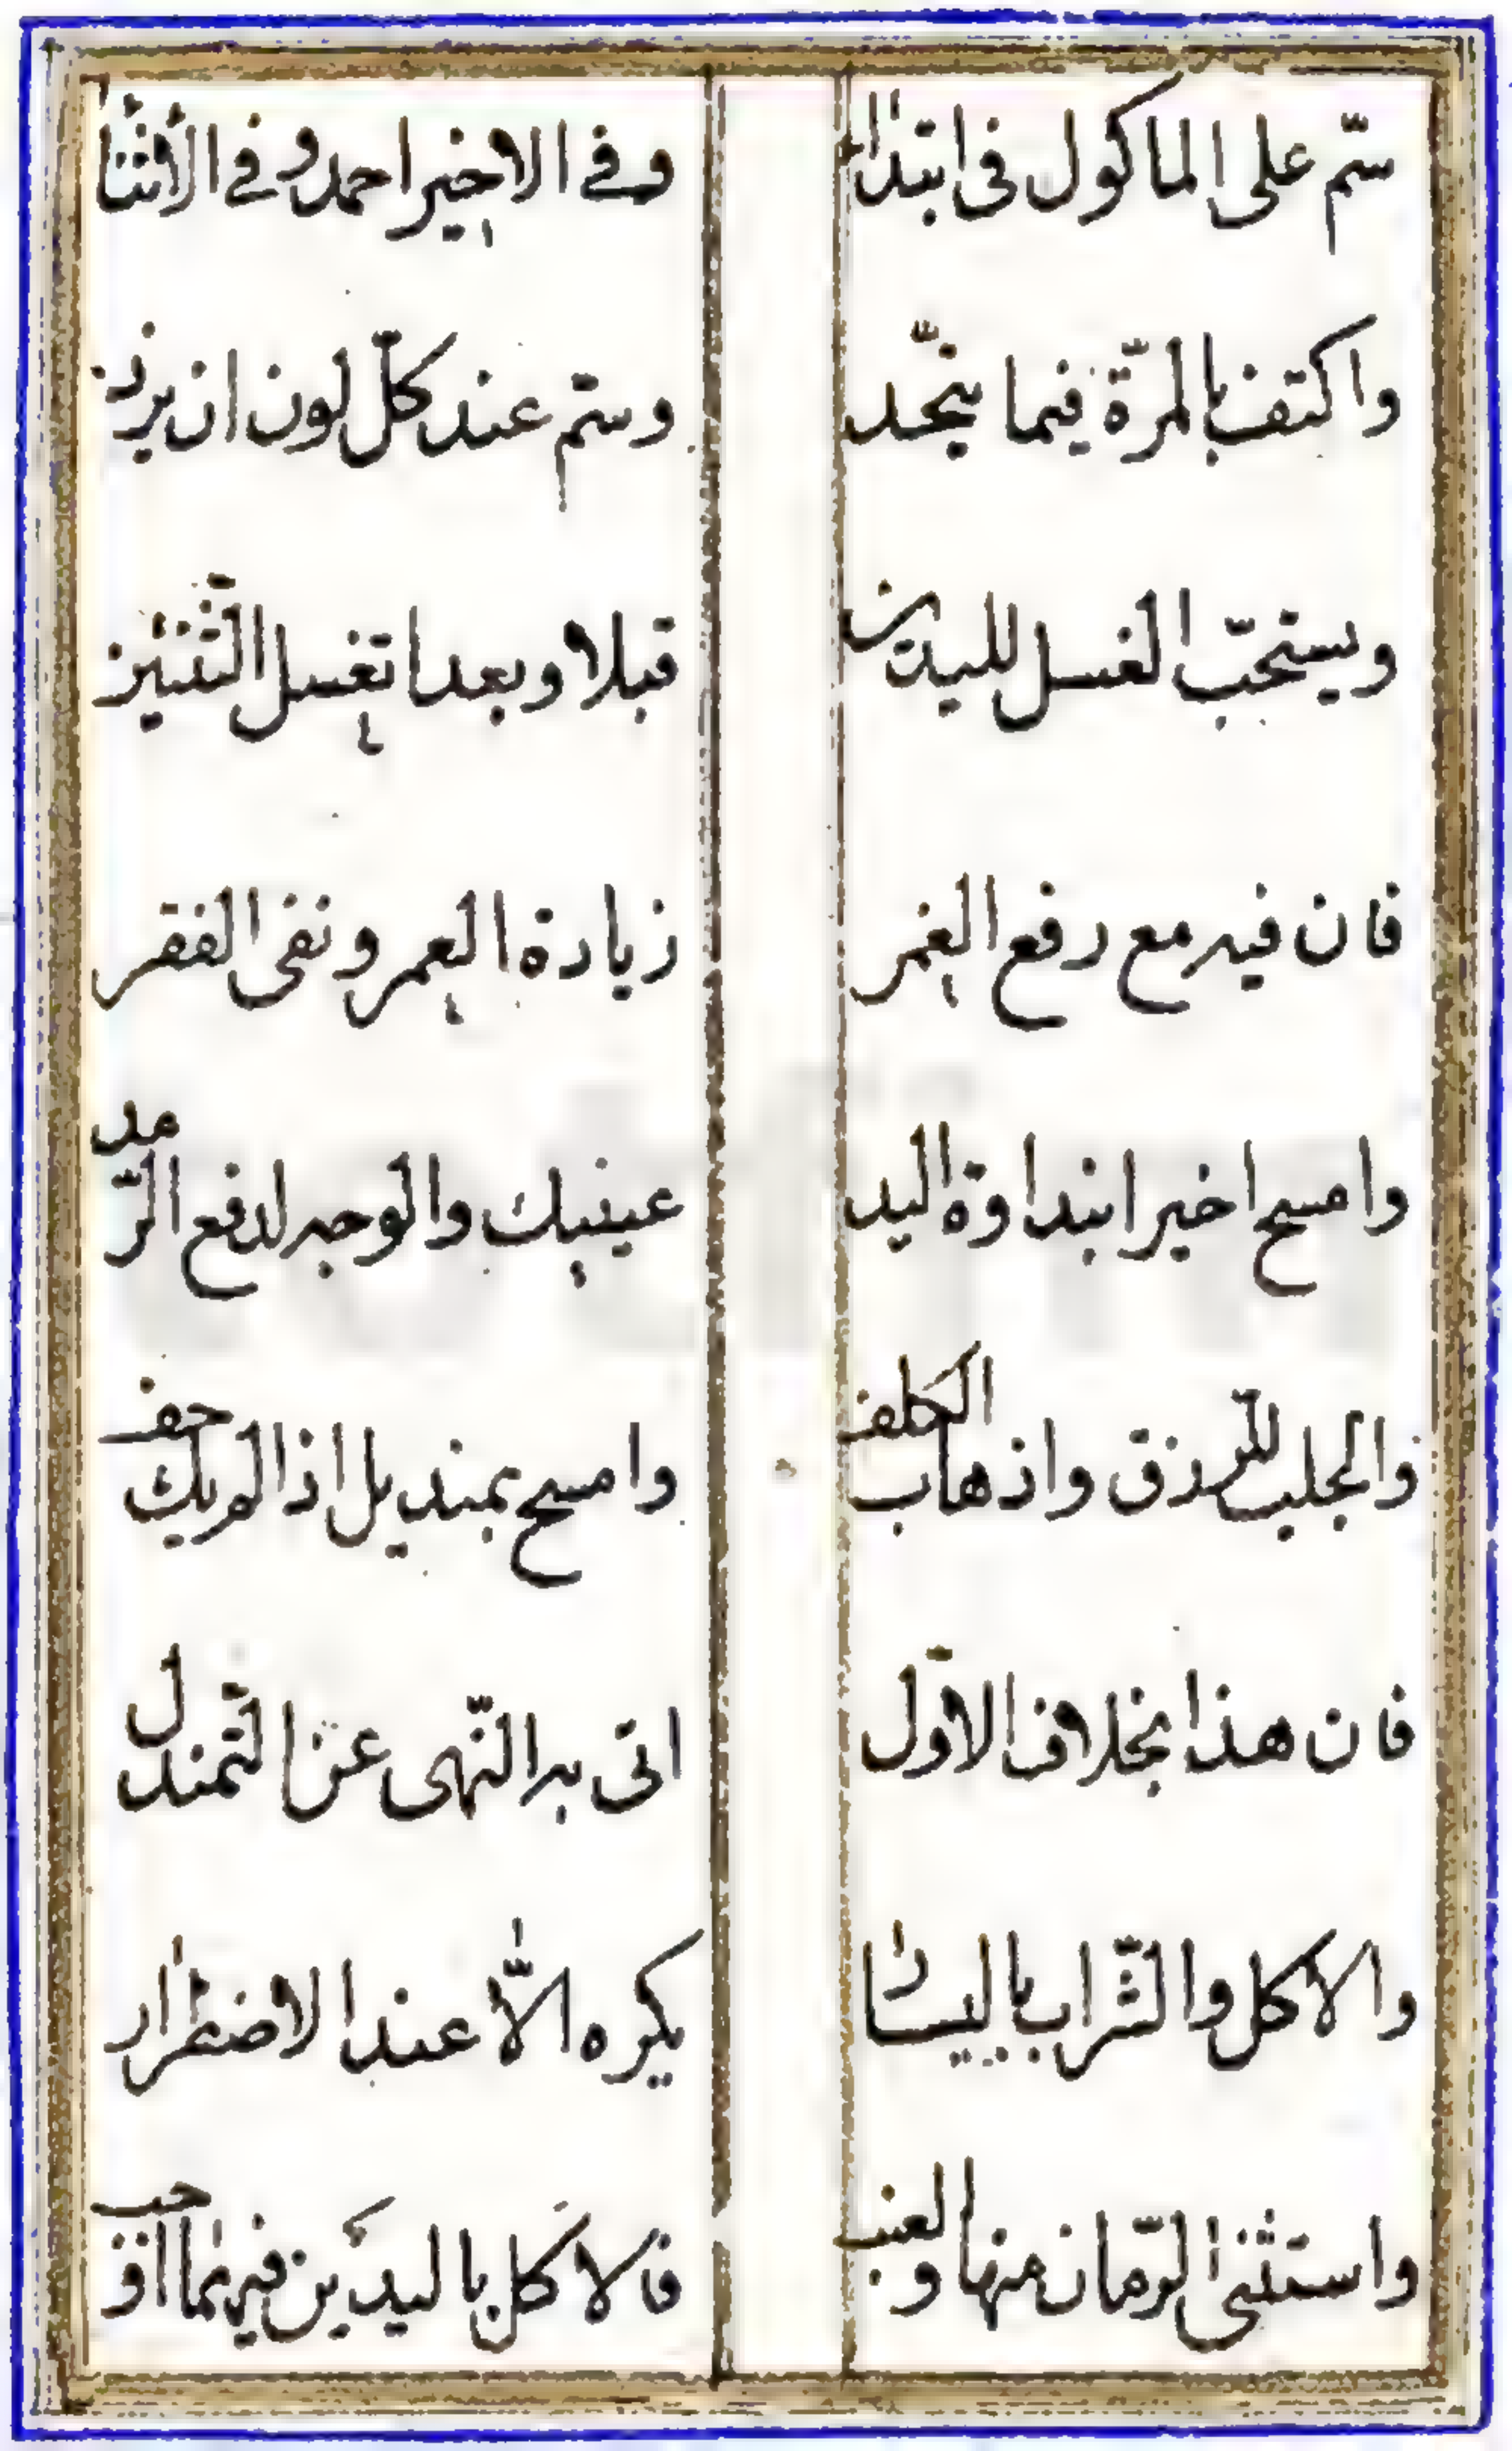 سمّ على الماكول فى ابتداء
وفى الاخير احمد وفى الأثناء
واكتف بالمرّة فيما يتّحد
وسمّ عند كلّ لون ان يزد
ويستحبّ الغسل لليدين
قبلا وبعدا تغسل الثّنتين
فان فيه مع رفع الغمر
زيادة العمر ونفى الفقر
وامسح اخيرا بنداوة اليد
عينيك والوجه لدفع الرّمد
والجلب للرّزق واذهاب الكلف
وامسح بمنديل اذا لم يك جف
فان هذا بخلاف الاوّل
اتى به النّهى عن التّمندل
والاكل والشّراب باليسار
يكره الاّ عند الاضطرار
واستثنى الرّمان منها والعنب
فالاكل باليدين فيهما احب